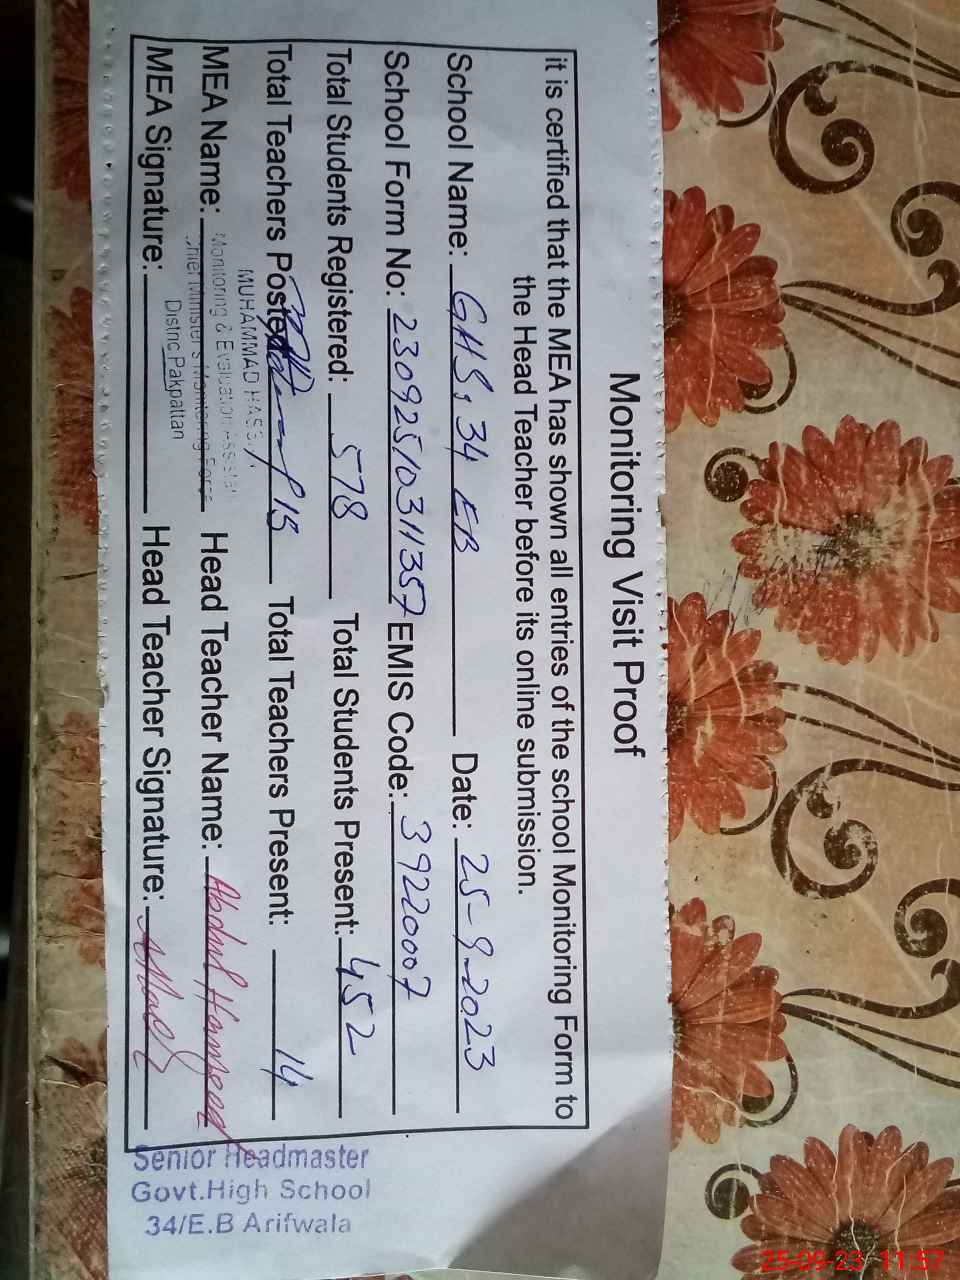 Monitoring Visit Proof
it is certified that the MEA has shown all entries of the school Monitoring Form to
the Head Teacher before its online submission.
School Name: GHS, 34 EB Date: 25-9-2023
School Form No: 23092510311357 EMIS Code: 3922007
Total Students Registered: 578 Total Students Present: 452
Total Teachers Posted 15 Total Teachers Present: 14
MUHAMMAD
Monitoring & Evaluation Assistant
MEA Name: Head Teacher Name: Abdul Hameed
Chief Minister's Monitoring Force
District Pakpattan
MEA Signature: Head Teacher Signature:
Senior Headmaster
Govt.High School
34/E.B Arifwala
25-09-23 11:57